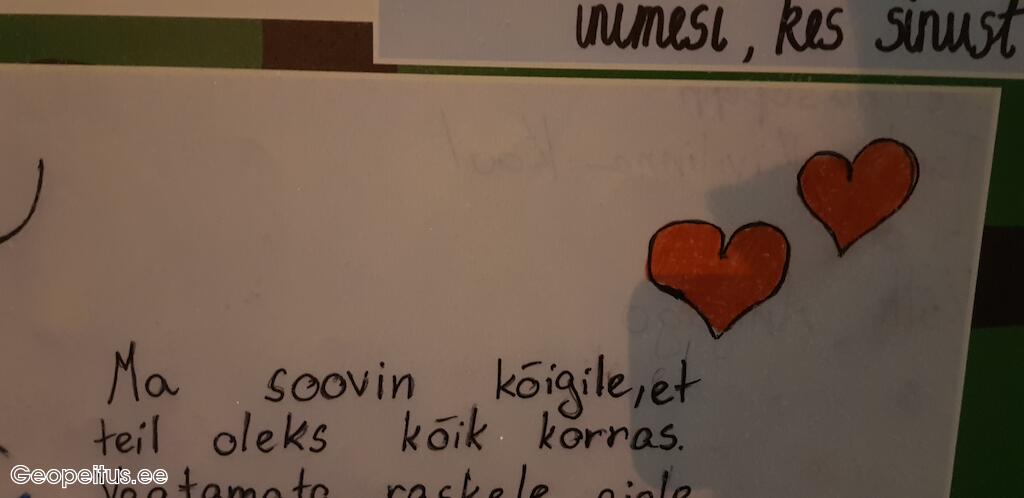 inimesi, kes sinust
Ma soovin kõigile, et
teil oleks kõik korras.
Vaatamata raskele ajale
Geopeitus.ee